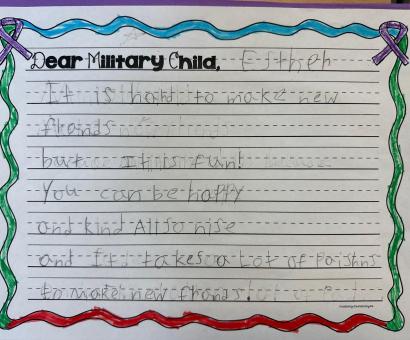 Dear Military Child, Esther
It is hard to make new
frands
but It is fun!
You can be happy
and kind Allso nise
and It takes a Lot of paishns
to make new frands!